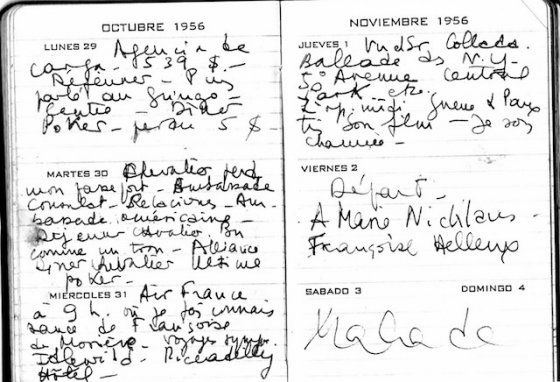 OCTUBRE 1956
LUNES 29 Agencia de
carga. 539 $.-
Déjeuner - Puis
parlé au Gringo -
Gentil - Dîner
Poker - perdu 5 $
MARTES 30 Chevalier perd
mon passeport - Ambassade
Consulat - Relaciones - Am-
bassade américaine -
Déjeuner Chevalier. Bu
comme un tron - Alliance
Diner Chevalier Ultime
poker -
MIERCOLES 31 Air France
à 9 h. où je fais connais
sance de Françoise
de Morière - voyage symp.
Idlewild - Piccadilly
Hôtel -
NOVIEMBRE 1956
JUEVES 1
Ballade ds N.Y-
5º Avenue Central
Park etc.
midi
son film - Je suis
VIERNES 2
Départ -
A Marie Nicklaus -
Françoise Helleux
SABADO 3 DOMINGO 4
Malade